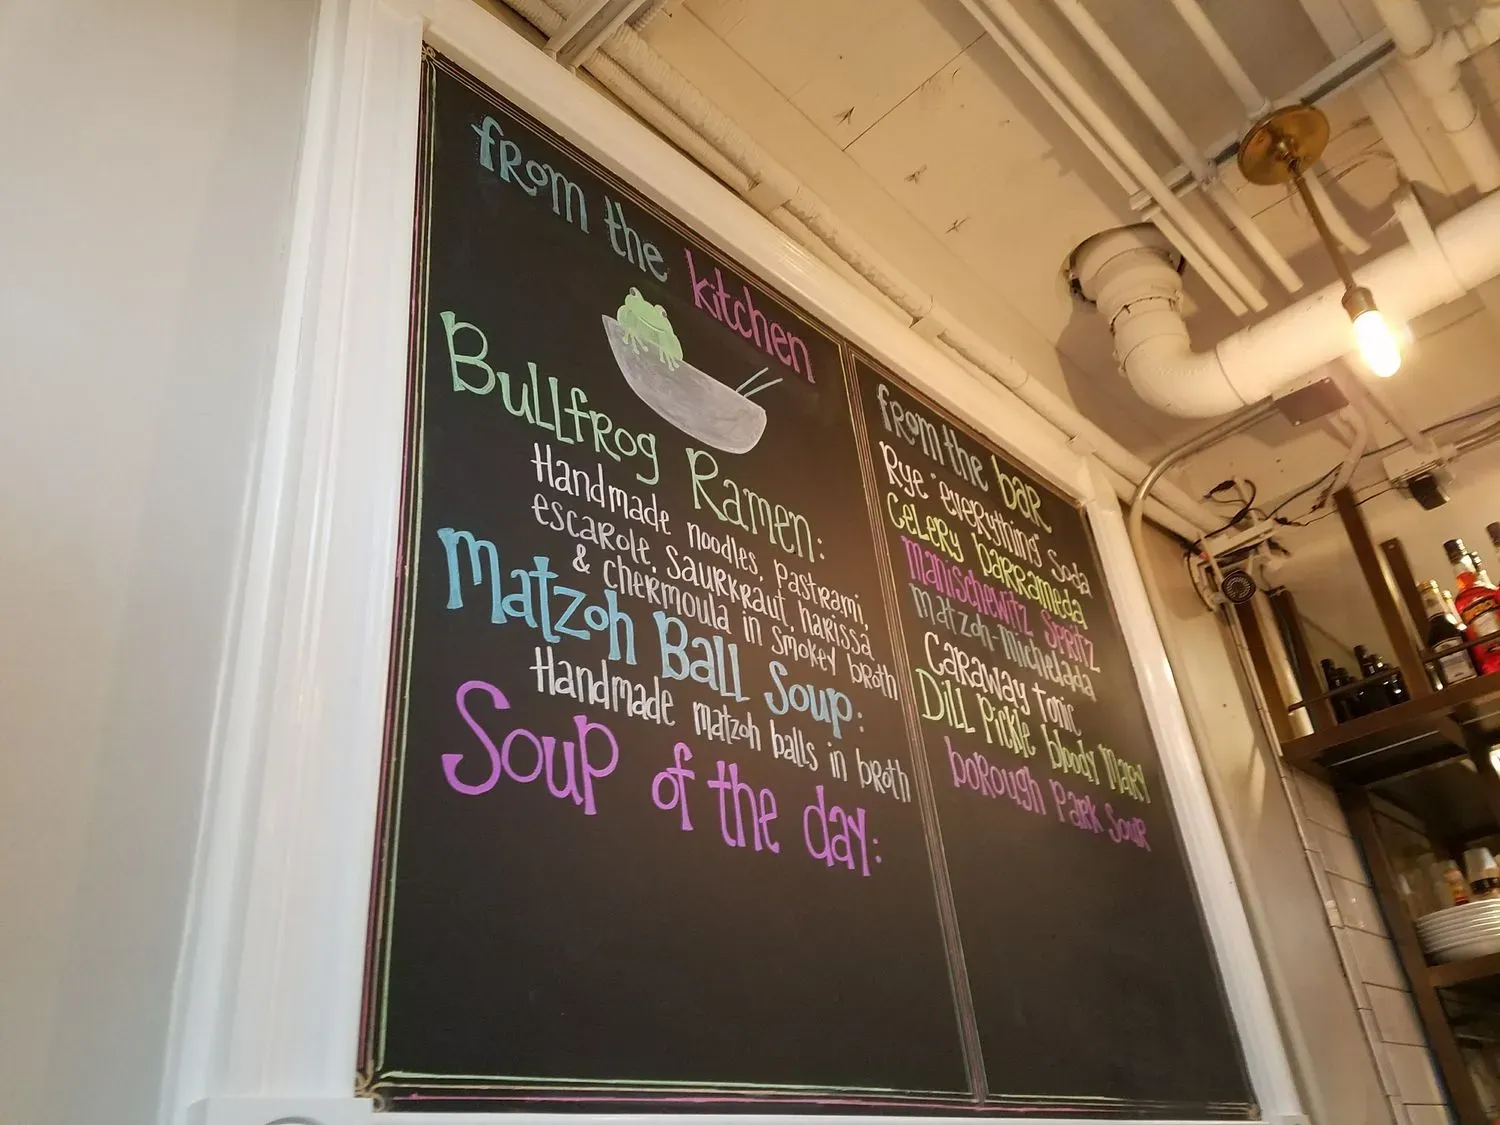 from the kitchen
Bullfrog Ramen:
Handmade noodles, pastrami,
escarole, saurkraut, harissa
& chermoula in smokey broth
Matzoh Ball Soup:
Handmade matzoh balls in broth
Soup of the day:
from the bar
Rye "everything" Soda
Celery barrameda
Manischewitz Spritz
Matzoh-Michelada
Caraway tonic
Dill Pickle bloody Mary
borough Park Sour